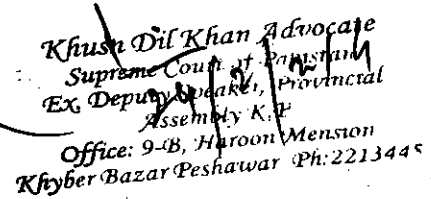 Khush Dil Khan Advocate
Supreme Court of Pakistan
Ex, Deputy Speaker, Provincial
Assembly K.P
Office: 9-B, Haroon Mension
Khyber Bazar Peshawar Ph:2213445